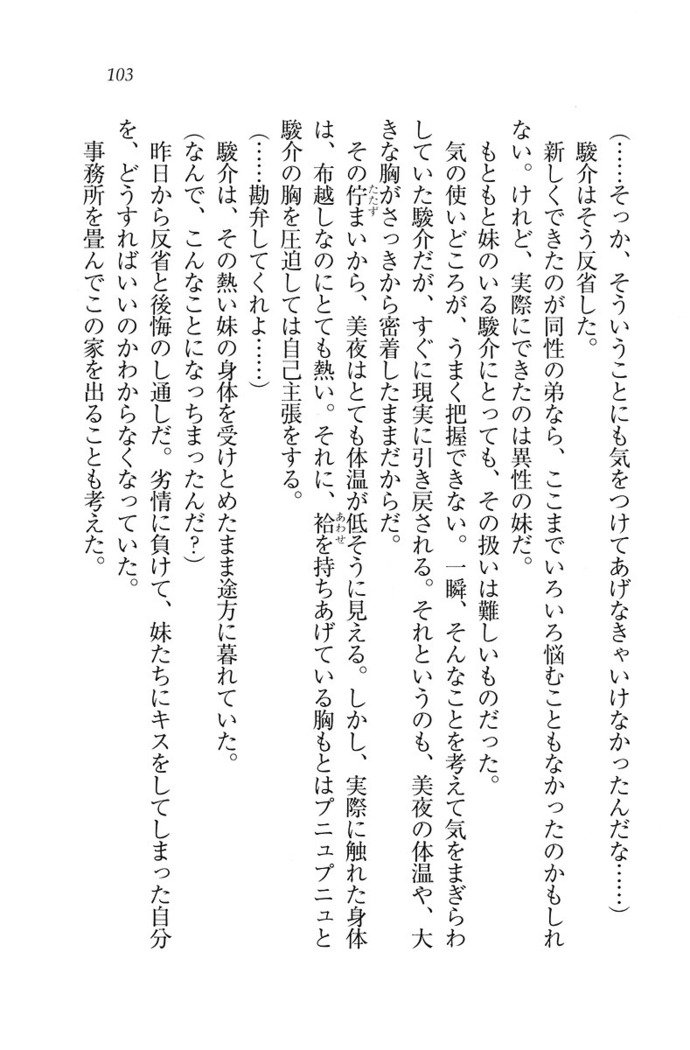 103
(……そっか、そういうことにも気をつけてあげなきゃいけなかったんだな……)
駿介はそう反省した。
新しくできたのが同性の弟なら、ここまでいろいろ悩むこともなかったのかもしれ
ない。けれど、実際にできたのは異性の妹だ。
もともと妹のいる駿介にとっても、その扱いは難しいものだった。
気の使いどころが、うまく把握できない。一瞬、そんなことを考えて気をまぎらわ
していた駿介だが、すぐに現実に引き戻される。それというのも、美夜の体温や、大
きな胸がさっきから密着したままだからだ。
その佇まいから、美夜はとても体温が低そうに見える。しかし、実際に触れた身体
は、布越しなのにとても熱い。それに、袷を持ちあげている胸もとはプニュプニュと
駿介の胸を圧迫しては自己主張をする。
(……勘弁してくれよ……)
駿介は、その熱い妹の身体を受けとめたまま途方に暮れていた。
(なんで、こんなことになっちまったんだ?)
昨日から反省と後悔のし通しだ。劣情に負けて、妹たちにキスをしてしまった自分
を、どうすればいいのかわからなくなっていた。
事務所を畳んでこの家を出ることも考えた。